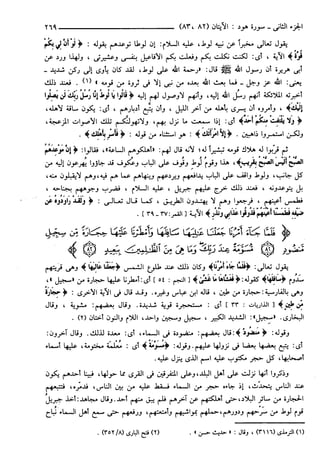 الجزء الثانى - سورة هود : الآيتان (٨٢ ، ٨٣) ٢٦٩
يقول تعالى مخبراً عن نبيه لوط، عليه السلام: إن لوطا توعدهم بقوله : ﴿ لَوْ أَنَّ لِي بِكُمْ
قُوَّةً ﴾ الآية ، أى: لكنت نكلت بكم وفعلت بكم الأفاعيل بنفسى وعشيرتى ، ولهذا ورد عن
أبى هريرة أن رسول الله ﷺ قال: «رحمة الله على لوط، لقد كان يأوى إلى ركن شديد -
يعنى: الله عز وجل - فما بعث الله بعده من نبى إلا فى ثروة من قومه» (١) . فعند ذلك
أخبرته الملائكة أنهم رسل الله إليه، وأنهم لا وصول لهم إليه ﴿ قَالُوا يَا لُوطُ إِنَّا رُسُلُ رَبِّكَ لَن يَصِلُوا
إِلَيْكَ ﴾ ، وأمروه أن يسرى بأهله من آخر الليل ، وأن يتبع أدبارهم ، أى: يكون ساقة لأهله،
﴿ وَلا يَلْتَفِتْ مِنكُمْ أَحَدٌ ﴾ أى: إذا سمعت ما نزل بهم ، ولا تهولنكم تلك الأصوات المزعجة،
ولكن استمروا ذاهبين . ﴿ إِلاَّ امْرَأَتَكَ ﴾ : هو استثناء من قوله : ﴿ فَأَسْرِ بِأَهْلِكَ ﴾ .
ثم قربوا له هلاك قومه تبشيراً له؛ لأنه قال لهم: «أهلكوهم الساعة»، فقالوا: ﴿ إِنَّ مَوْعِدَهُمُ
الصُّبْحُ أَلَيْسَ الصُّبْحُ بِقَرِيبٍ﴾، هذا وقوم لوط وقوف على الباب وعكوف قد جاؤوا يُهرعون إليه من
كل جانب، ولوط واقف على الباب يدافعهم ويردعهم وينهاهم عما هم فيه، وهم لا يقبلون منه،
بل يتوعدونه ، فعند ذلك خرج عليهم جبريل ، عليه السلام ، فضرب وجوههم بجناحه ،
فطمس أعينهم ، فرجعوا وهم لا يهتدون الطريق ، كما قال تعالى : ﴿ وَلَقَدْ رَاوَدُوهُ عَن
ضَيْفِهِ فَطَمَسْنَا أَعْيُنَهُمْ فَذُوقُوا عَذَابِي وَنُذُرِ ﴾ الآية [ القمر: ٣٧ - ٣٩ ] .
فَلَمَّا جَاءَ أَمْرُنَا جَعَلْنَا عَالِيَهَا سَافِلَهَا وَأَمْطَرْنَا عَلَيْهَا حِجَارَةً مِّن سِجِّيلٍ
مَّنضُودٍ ﴿٨٢﴾ مُّسَوَّمَةً عِندَ رَبِّكَ وَمَا هِيَ مِنَ الظَّالِمِينَ بِبَعِيدٍ ﴿٨٣﴾
يقول تعالى: ﴿ فَلَمَّا جَاءَ أَمْرُنَا ﴾ وكان ذلك عند طلوع الشمس ﴿ جَعَلْنَا عَالِيَهَا ﴾ وهى قريتهم
سَدُوم ﴿سَافِلَهَا﴾ كقوله: ﴿ فَغَشَّاهَا مَا غَشَّىٰ ﴾ [ النجم : ٥٤ ] أى: أمطرنا عليها حجارة من «سجيل »،
وهى بالفارسية: حجارة من طين ، قاله ابن عباس وغيره. وقد قال فى الآية الأخرى : ﴿ حِجَارَةً
مِّن طِينٍ ﴾ [ الذاريات : ٣٣ ] أى : مستحجرة قوية شديدة. وقال بعضهم: مشوية ، وقال
البخارى. «سجيل»: الشديد الكبير ، سجيل وسجين واحد، اللام والنون أختان (٢) .
وقوله: ﴿ مَنضُودٍ ﴾: قال بعضهم: منضودة فى السماء، أى: معدة لذلك. وقال آخرون:
أى: يتبع بعضها بعضا فى نزولها عليهم. وقوله: ﴿مُسَوَّمَةً ﴾ أى : مُعلَمة مختومة، عليها أسماء
أصحابها، كل حجر مكتوب عليه اسم الذى ينزل عليه.
وذكروا أنها نزلت على أهل البلد، وعلى المتفرقين فى القرى مما حولها، فبينا أحدهم يكون
عند الناس يتحدّث، إذ جاءه حجر من السماء فسقط عليه من بين الناس، فدمّره، فتتبعهم
الحجارة من سائر البلاد، حتى أهلكتهم عن آخرهم فلم يبق منهم أحد. وقال مجاهد: أخذ جبريلُ
قوم لوط من سَرْحهم ودورهم، حملهم بمواشيهم وأمتعتهم، ورفعهم حتى سمع أهل السماء نُباح
(١) الترمذى (٣١١٦) ، وقال : « حديث حسن » . (٢) فتح البارى (٨/ ٣٥٢) .